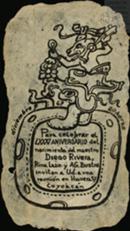 Para celebrar el
LXXXI ANIVERSARIO del
nacimiento del maestro
DIEGO RIVERA,
Rina Lazo y A.G. Bustos
invitan a Ud. a una
reunión en
Coyoacán